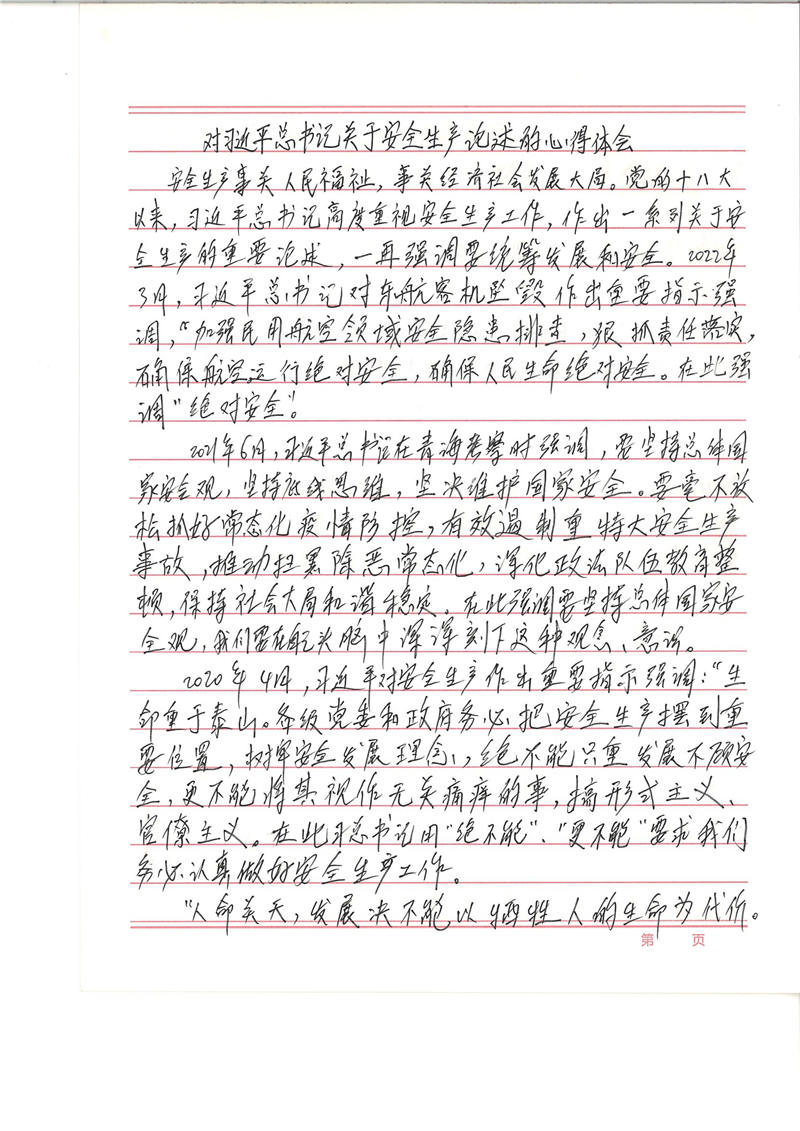 对习近平总书记关于安全生产论述的心得体会
安全生产事关人民福祉，事关经济社会发展大局。党的十八大
以来，习近平总书记高度重视安全生产工作，作出一系列关于安
全生产的重要论述，一再强调要统筹发展和安全。2022年
3月，习近平总书记对东航客机坠毁作出重要指示强
调，“加强民用航空领域安全隐患排查，狠抓责任落实，
确保航空运行绝对安全，确保人民生命绝对安全。在此强
调“绝对安全”。
2021年6月，习近平总书记在青海考察时强调，要坚持总体国
家安全观，坚持底线思维，坚决维护国家安全。要毫不放
松抓好常态化疫情防控，有效遏制重特大安全生产
事故，推动扫黑除恶常态化，深化政法队伍教育整
顿，保持社会大局和谐稳定。在此强调要坚持总体国家安
全观，我们要在自己头脑中深深刻下这种观念、意识。
2020年4月，习近平对安全生产作出重要指示强调：“生
命重于泰山。各级党委和政府务必把安全生产摆到重
要位置，树牢安全发展理念，绝不能只重发展不顾安
全，更不能将其视作无关痛痒的事，搞形式主义、
官僚主义。在此习总书记用“绝不能”、“更不能”要求我们
务必认真做好安全生产工作。
“人命关天，发展决不能以牺牲人的生命为代价。
第 页